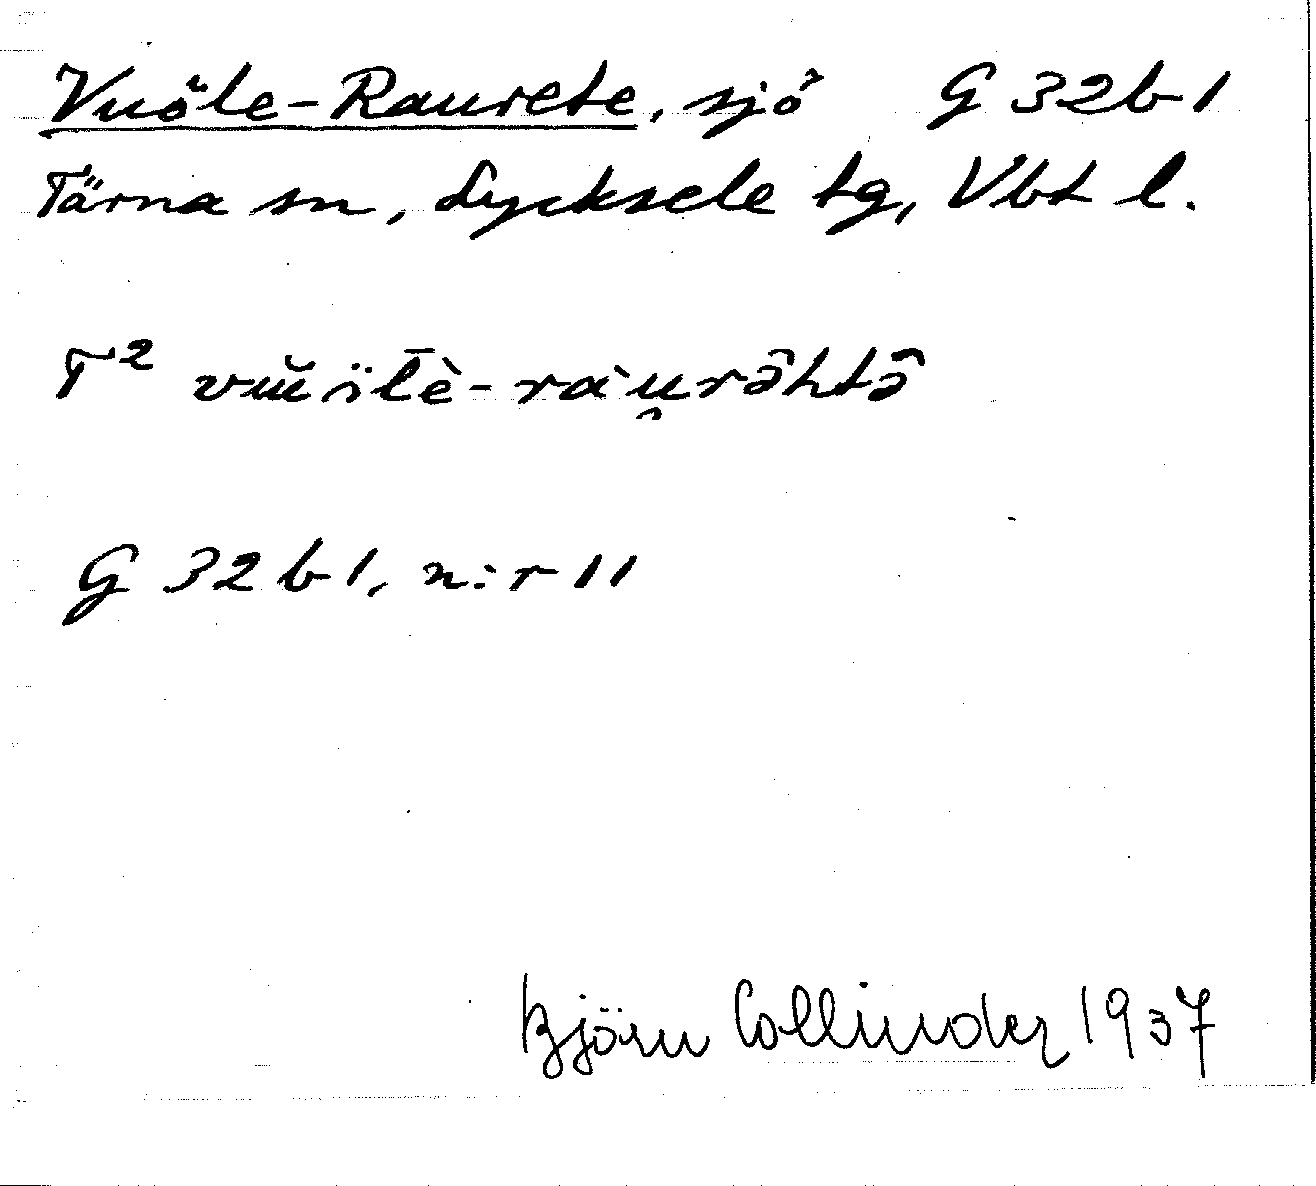 Vuöle-Raurete, sjö G 32b1
Tärna sn, Lycksele tg, Vbt l.
T²
G 32b1, n:r 11
Björn Collinder 1937